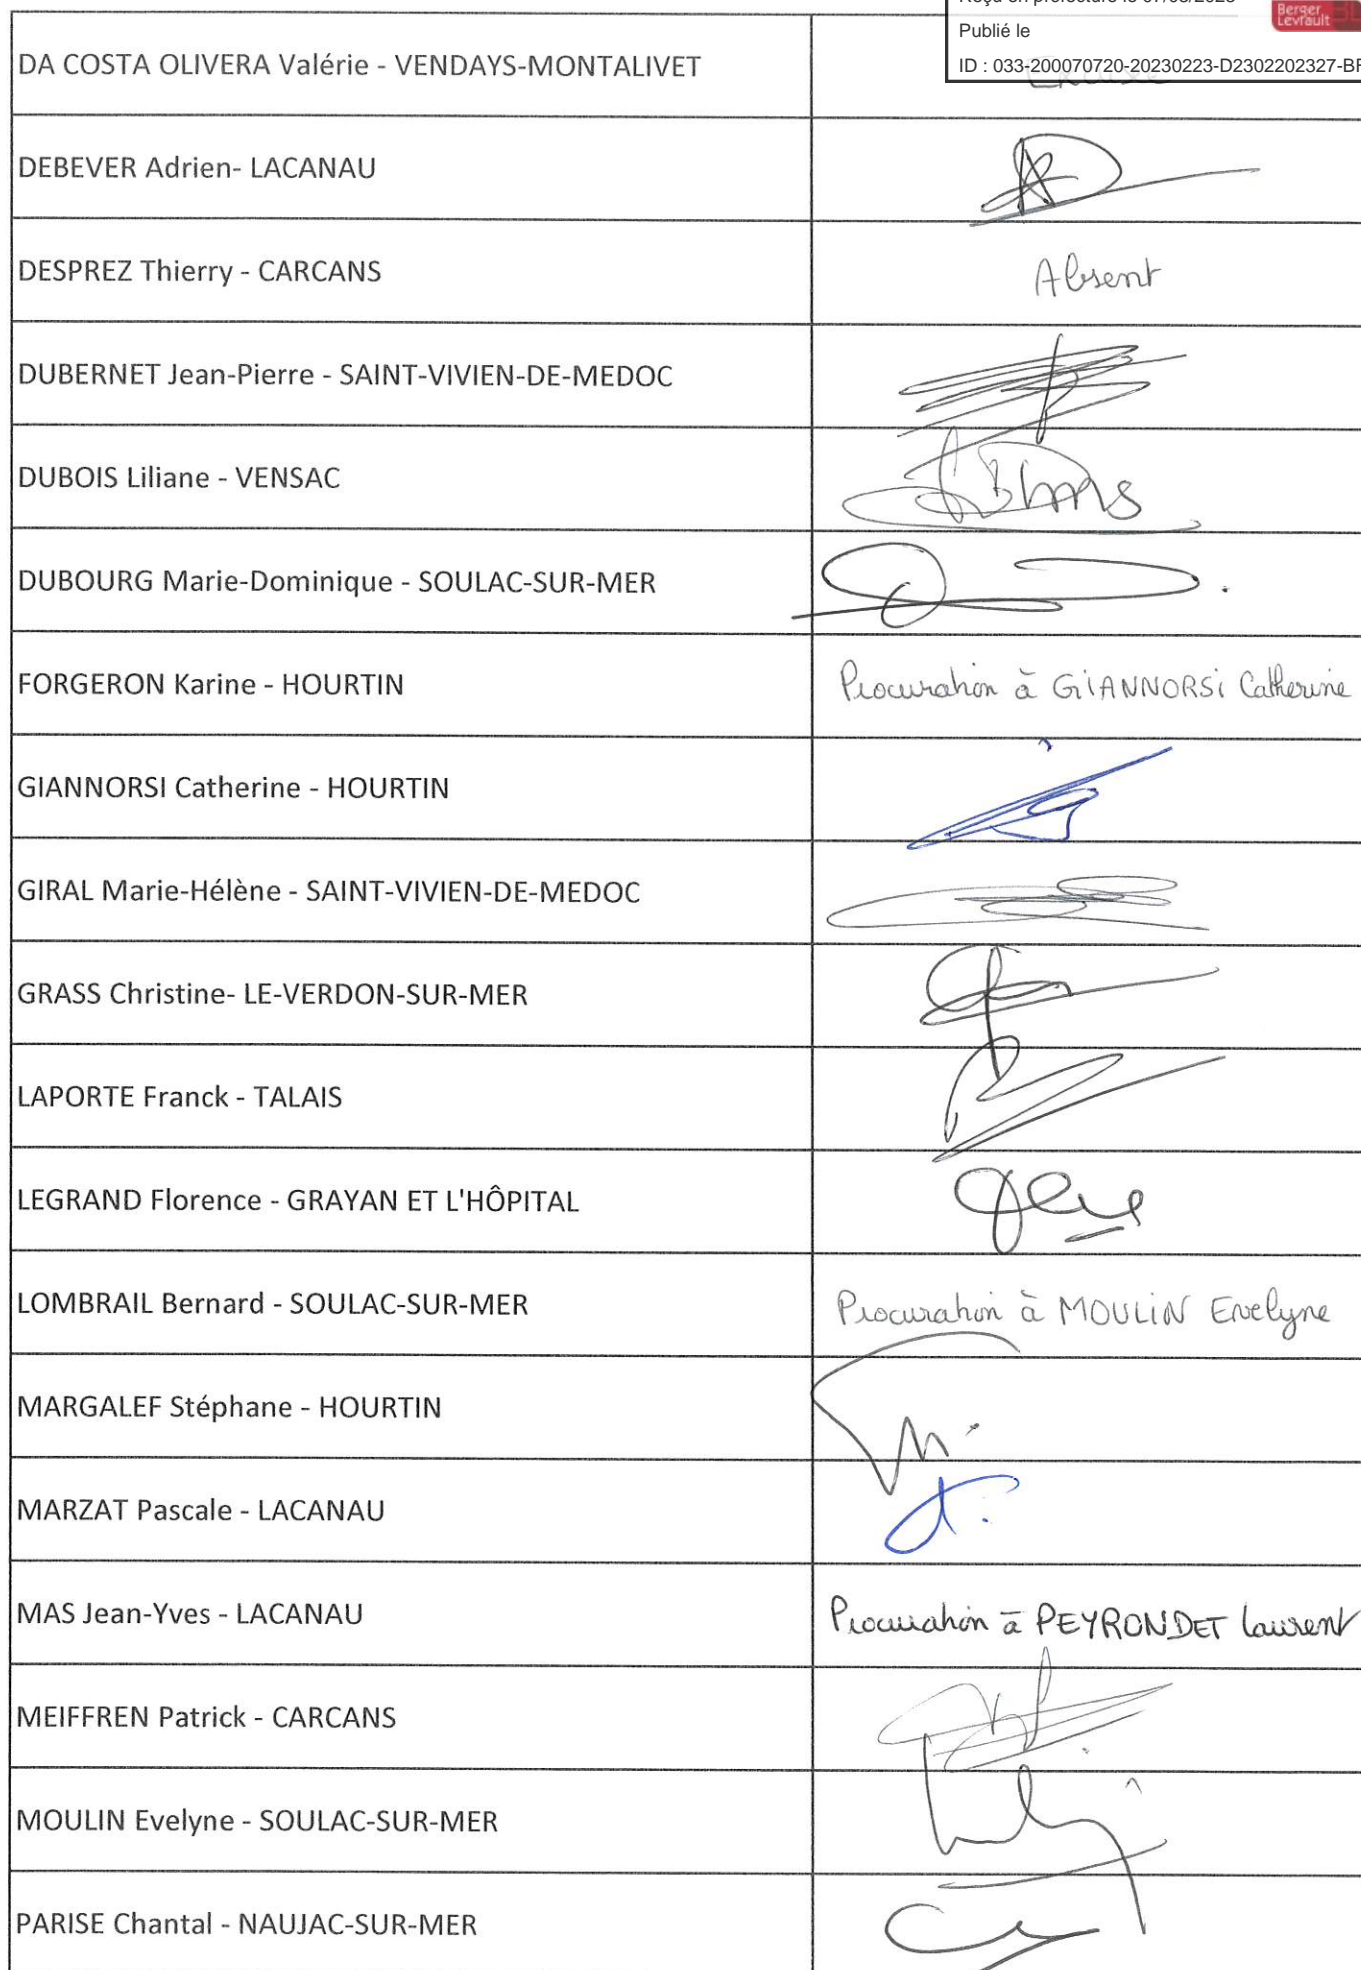 Publié le
ID : 033-200070720-20230223-D2302202327-BF
Berger
Levrault
DA COSTA OLIVERA Valérie - VENDAYS-MONTALIVET
DEBEVER Adrien- LACANAU
DESPREZ Thierry - CARCANS Absent
DUBERNET Jean-Pierre - SAINT-VIVIEN-DE-MEDOC
DUBOIS Liliane - VENSAC
DUBOURG Marie-Dominique - SOULAC-SUR-MER
FORGERON Karine - HOURTIN Procuration à GIANNORSI Catherine
GIANNORSI Catherine - HOURTIN
GIRAL Marie-Hélène - SAINT-VIVIEN-DE-MEDOC
GRASS Christine- LE-VERDON-SUR-MER
LAPORTE Franck - TALAIS
LEGRAND Florence - GRAYAN ET L'HÔPITAL
LOMBRAIL Bernard - SOULAC-SUR-MER Procuration à MOULIN Evelyne
MARGALEF Stéphane - HOURTIN
MARZAT Pascale - LACANAU
MAS Jean-Yves - LACANAU Procuration à PEYRONDET Laurent
MEIFFREN Patrick - CARCANS
MOULIN Evelyne - SOULAC-SUR-MER
PARISE Chantal - NAUJAC-SUR-MER